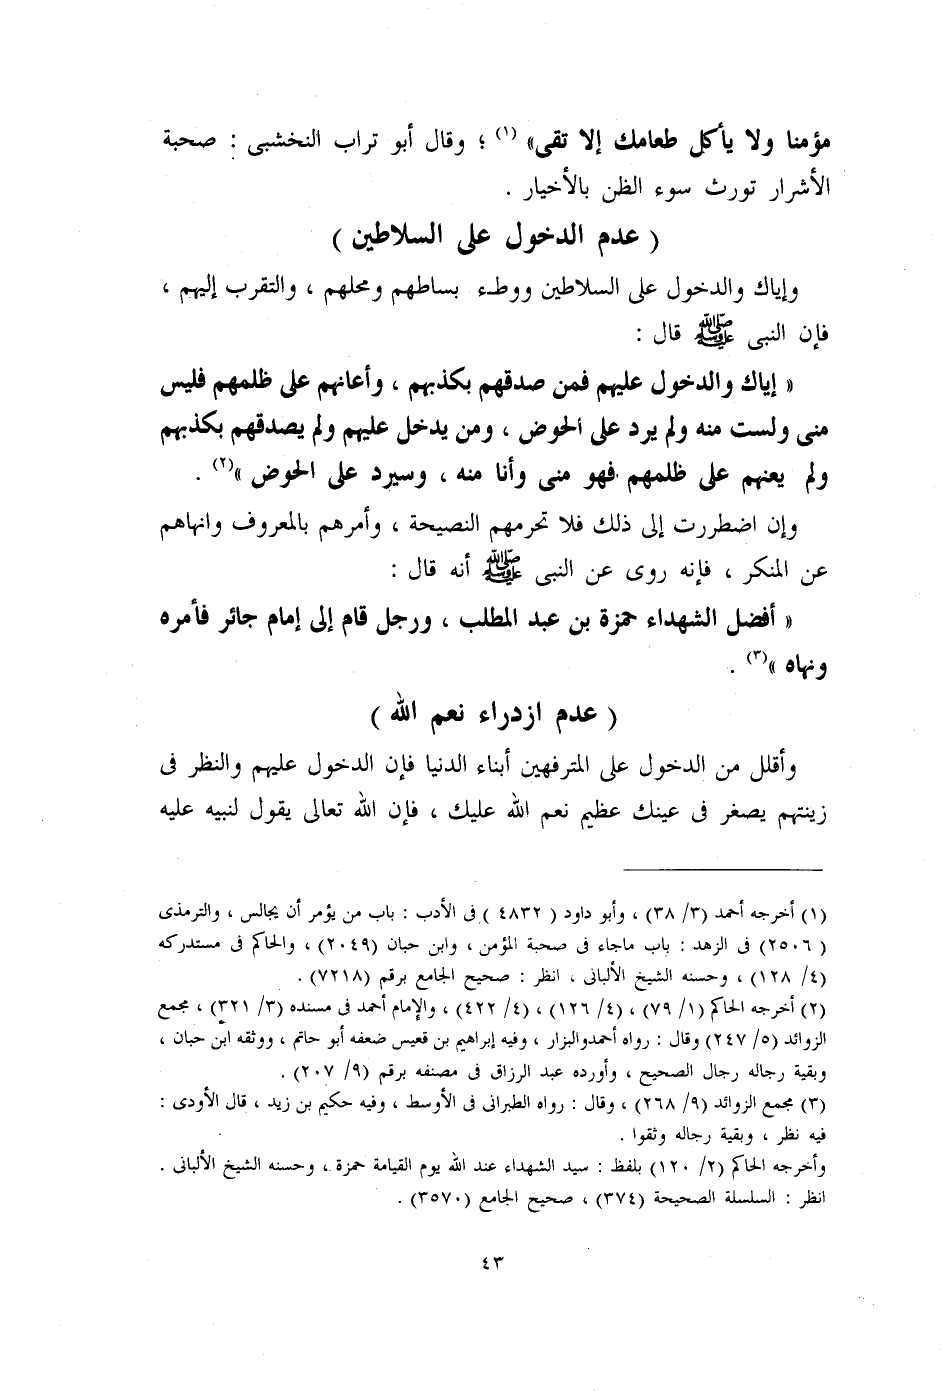 مؤمنا ولا يأكل طعامك إلا تقى» (١) ؛ وقال أبو تراب النخشبى : صحبة
الأشرار تورث سوء الظن بالأخيار .
( عدم الدخول على السلاطين )
وإياك والدخول على السلاطين ووطء بساطهم ومحلهم ، والتقرب إليهم ،
فإن النبى ﷺ قال :
« إياك والدخول عليهم فمن صدقهم بكذبهم ، وأعانهم على ظلمهم فليس
منى ولست منه ولم يرد على الحوض ، ومن يدخل عليهم ولم يصدقهم بكذبهم
ولم يعنهم على ظلمهم فهو منى وأنا منه ، وسيرد على الحوض »(٢) .
وإن اضطررت إلى ذلك فلا تحرمهم النصيحة ، وأمرهم بالمعروف وانهاهم
عن المنكر ، فإنه روى عن النبى ﷺ أنه قال :
« أفضل الشهداء حمزة بن عبد المطلب ، ورجل قام إلى إمام جائر فأمره
ونهاه »(٣) .
( عدم ازدراء نعم الله )
وأقلل من الدخول على المترفهين أبناء الدنيا فإن الدخول عليهم والنظر فى
زينتهم يصغر فى عينك عظيم نعم الله عليك ، فإن الله تعالى يقول لنبيه عليه
(١) أخرجه أحمد (٣/ ٣٨) ، وأبو داود ( ٤٨٣٢ ) فى الأدب : باب من يؤمر أن يجالس ، والترمذى
( ٢٥٠٦) فى الزهد : باب ماجاء فى صحبة المؤمن ، وابن حبان (٢٠٤٩) ، والحاكم فى مستدركه
(٤/ ١٢٨) ، وحسنه الشيخ الألبانى ، انظر : صحيح الجامع برقم (٧٢١٨) .
(٢) أخرجه الحاكم (١/ ٧٩) ، (٤/ ١٢٦) ، (٤/ ٤٢٢) ، والإمام أحمد فى مسنده (٣/ ٣٢١) ، مجمع
الزوائد (٥/ ٢٤٧) وقال : رواه أحمدوالبزار ، وفيه إبراهيم بن قعيس ضعفه أبو حاتم ، ووثقه ابن حبان ،
وبقية رجاله رجال الصحيح ، وأورده عبد الرزاق فى مصنفه برقم (٩/ ٢٠٧) .
(٣) مجمع الزوائد (٩/ ٢٦٨) ، وقال : رواه الطبرانى فى الأوسط ، وفيه حكيم بن زيد ، قال الأودى :
فيه نظر ، وبقية رجاله وثقوا .
وأخرجه الحاكم (٢/ ١٢٠) بلفظ : سيد الشهداء عند الله يوم القيامة حمزة ، وحسنه الشيخ الألبانى .
انظر : السلسلة الصحيحة (٣٧٤) ، صحيح الجامع (٣٥٧٠) .
٤٣